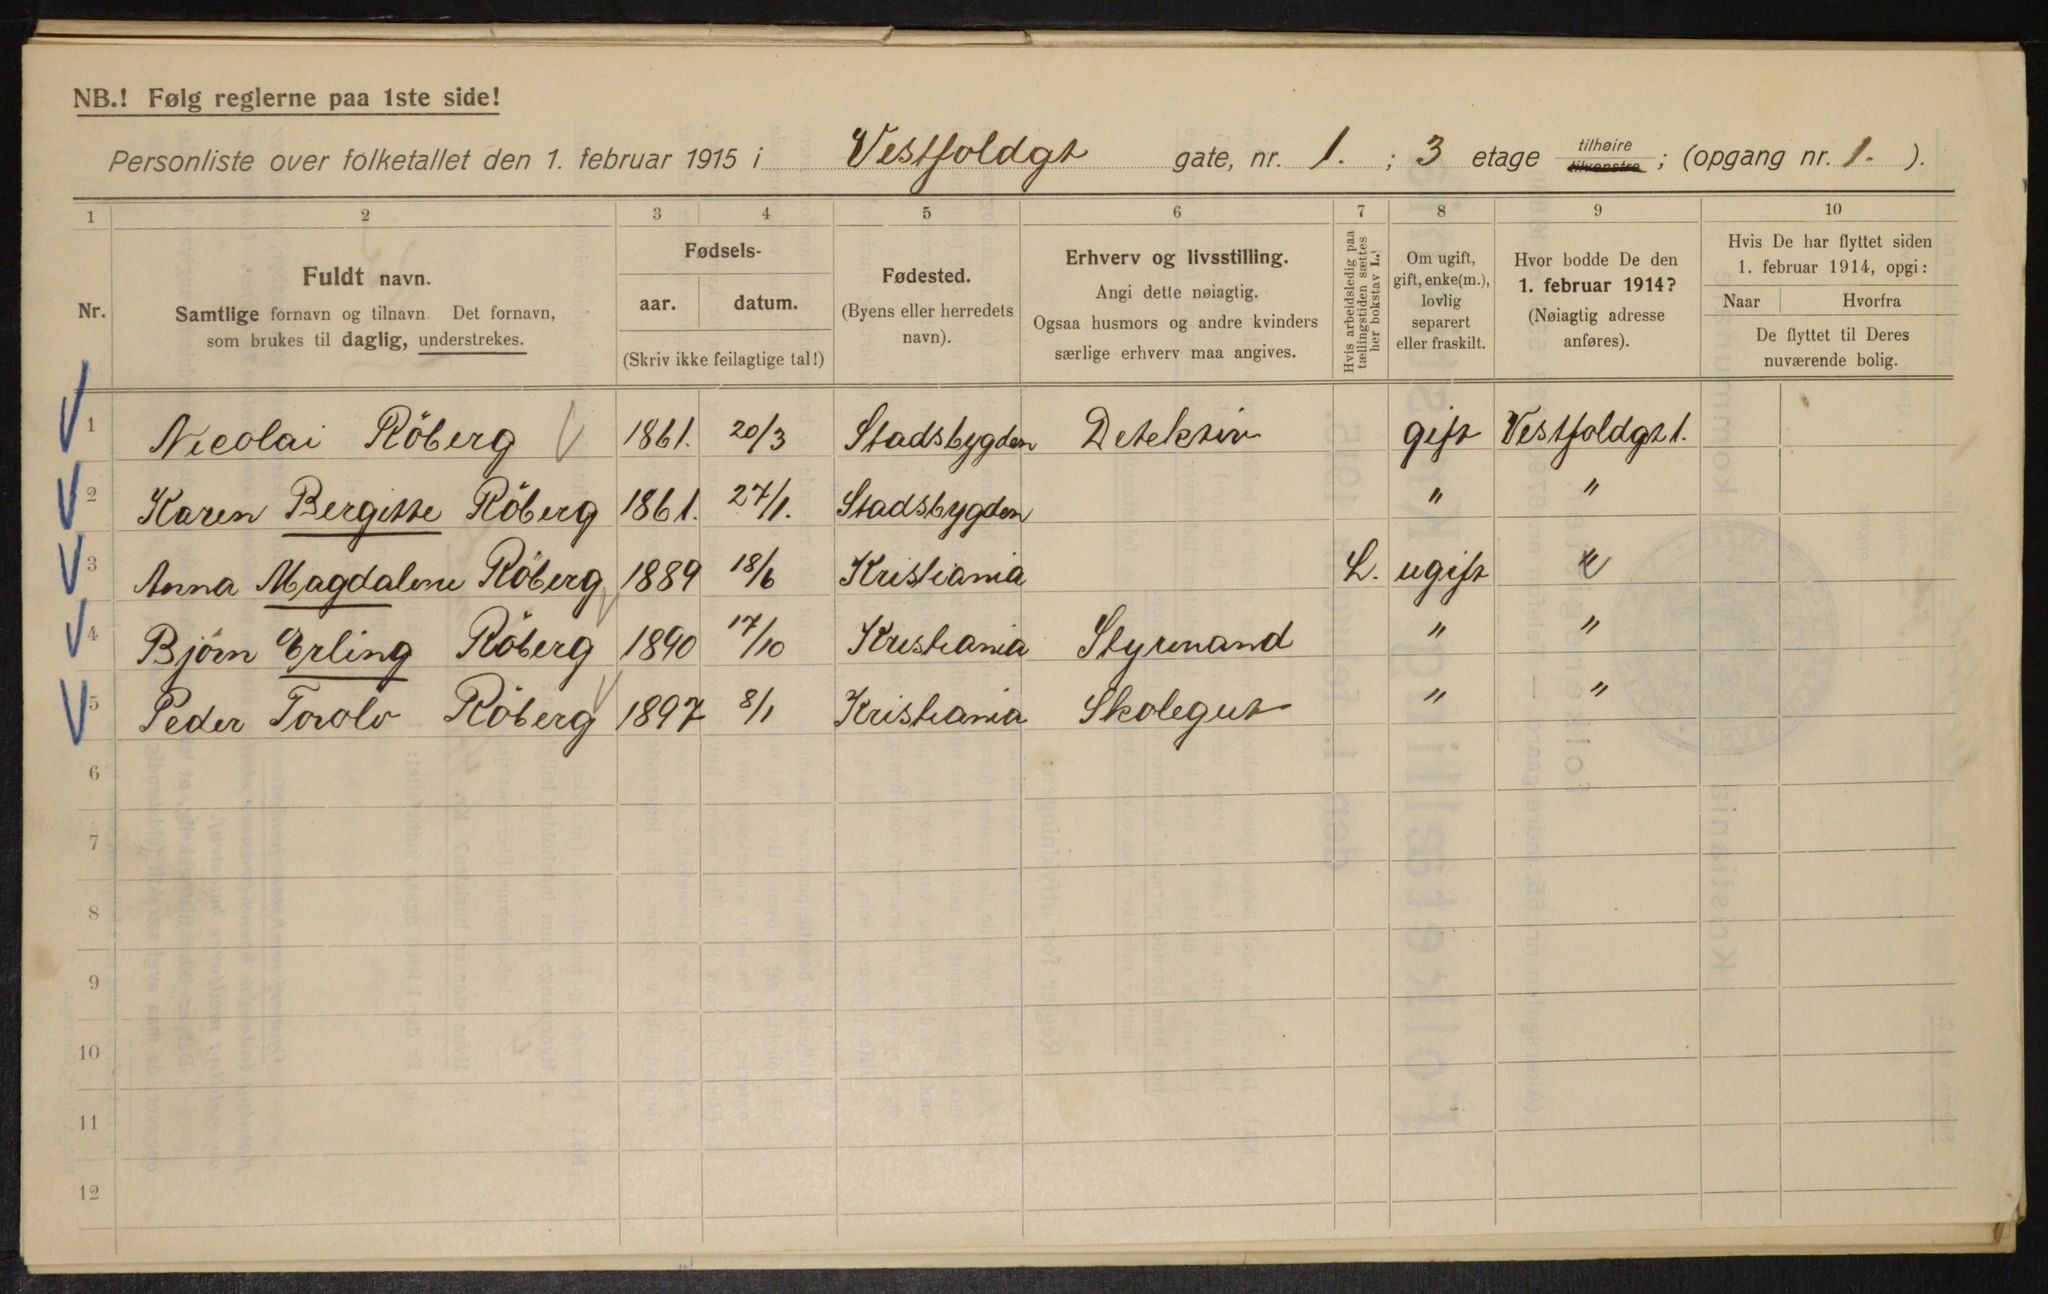 NB.! Følg reglerne paa 1ste side!
Personliste over folketallet den 1. februar 1915 i Vestfoldgt gate, nr. 1. ; 3 etage tilhøire tilvenstre ; (opgang nr. 1. ).
1 2 3 4 5 6 7 8 9 10
Nr.
Fuldt navn.
Samtlige fornavn og tilnavn. Det fornavn,
som brukes til daglig, understrekes.
Fødsels-
aar. datum.
(Skriv ikke feilagtige tal!)
Fødested.
(Byens eller herredets
navn).
Erhverv og livsstilling.
Angi dette nøiagtig.
Ogsaa husmors og andre kvinders
særlige erhverv maa angives.
Hvis arbeidsledig paa
tællingstiden sættes
her bokstav L.
Om ugift,
gift, enke(m.),
lovlig
separert
eller fraskilt.
Hvor bodde De den
1. februar 1914?
(Nøiagtig adresse
anføres).
Hvis De har flyttet siden
1. februar 1914, opgi:
Naar Hvorfra
De flyttet til Deres
nuværende bolig.
1 Nicolai Röberg 1861. 20/3 Stadsbygden Detektiv gift Vestfoldgt 1.
2 Karen Bergitte Röberg 1861. 27/1. Stadsbygden " "
3 Anna Magdalene Röberg 1889 18/6 Kristiania L. ugift "
4 Bjørn Erling Röberg 1890 17/10 Kristiania Styrmand " "
5 Peder Torolv Röberg 1897 8/1 Kristiania Skolegut " "
6
7
8
9
10
11
12